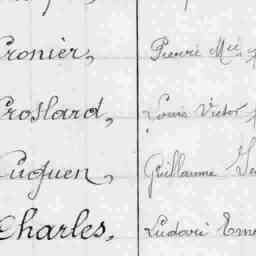 Cronier, Pierre Mie
Crossard, Louis Victor
Cuguen, Guillaume
Charles, Ludovic Erne